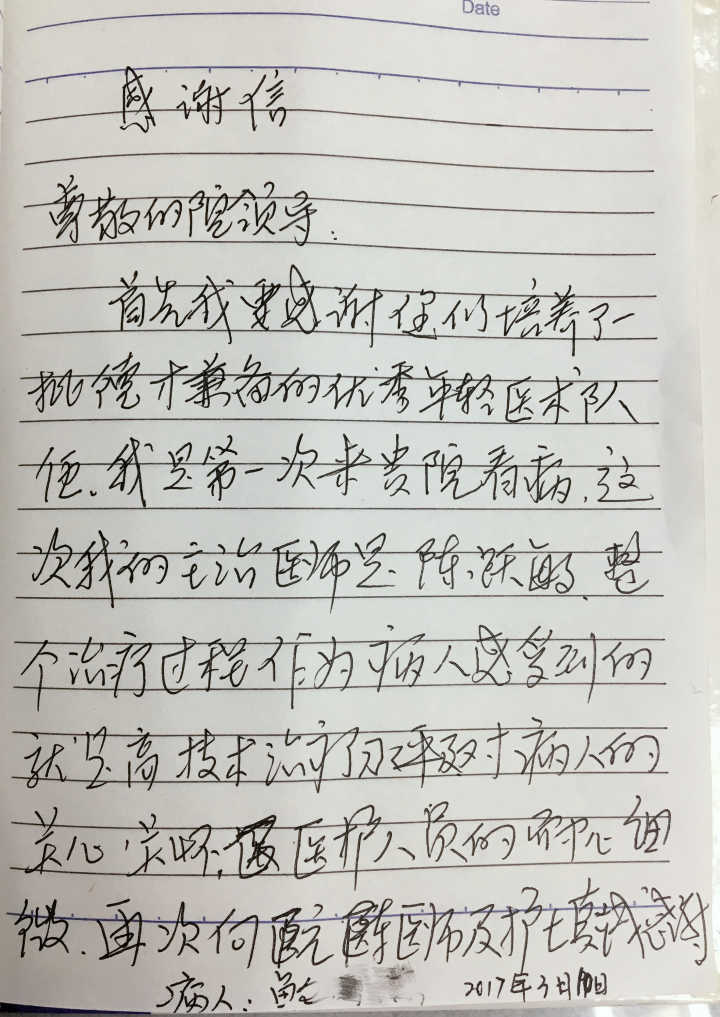 Date
感谢信
尊敬的院领导:
首先我要感谢你们培养了一
批德才兼备的优秀年轻医术队
伍.我是第一次来贵院看病.这
次我的主治医师是陈跃.整
个治疗过程作为病人感受到的
就是高技术治疗水平及对病人的
关心关怀,医护人员的耐心细
微.再次向医院陈医师及护士真诚感谢
病人:
2017年3月10日